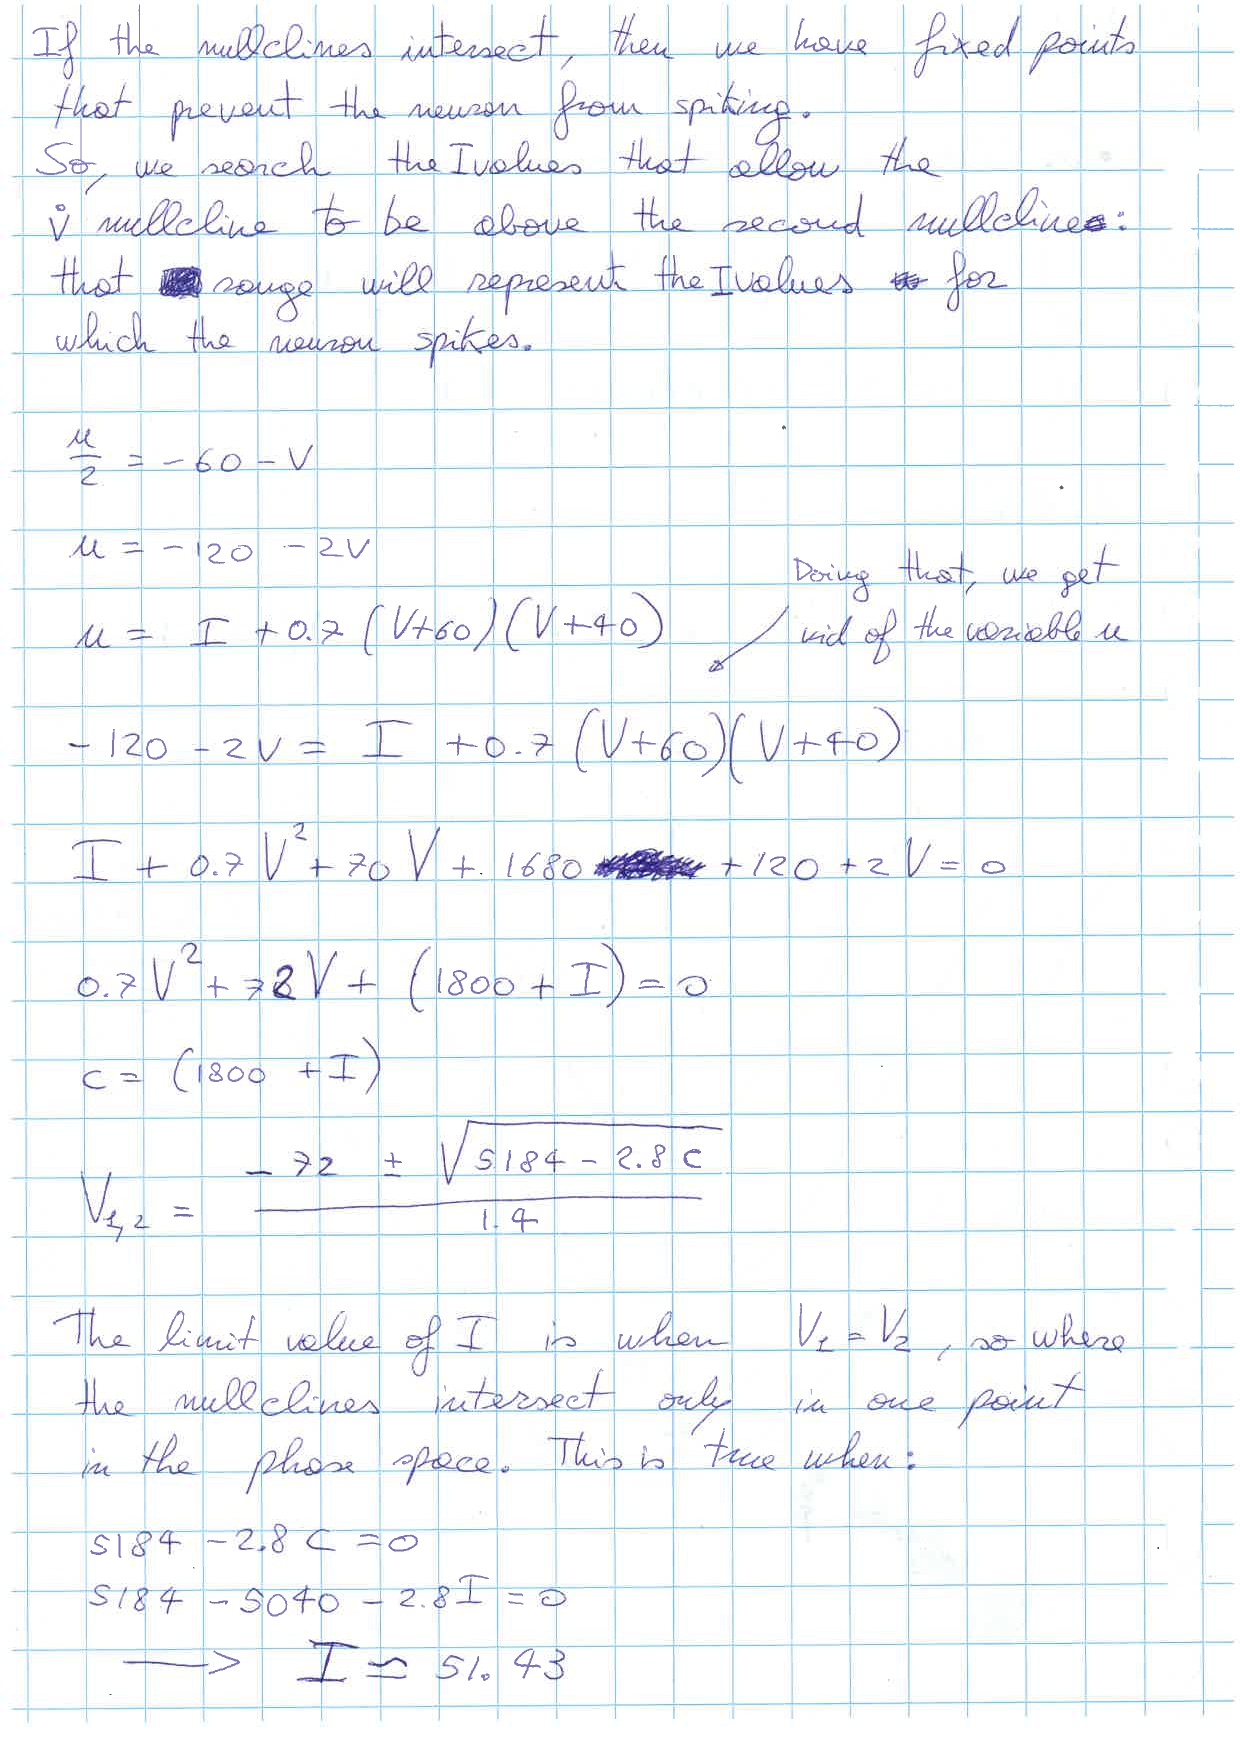 If the nullclines intersect, then we have fixed points
that prevent the neuron from spiking.
So, we search the I values that allow the
v̇ nullcline to be above the second nullcline:
that range will represent the I values for
which the neuron spikes.
u/2 = -60 - V
u = -120 - 2V
Doing that, we get
rid of the variable u
u = I + 0.7 (V+60)(V+40)
-120 - 2V = I + 0.7 (V+60)(V+40)
I + 0.7 V² + 70 V + 1680 + 120 + 2V = 0
0.7 V² + 72 V + (1800 + I) = 0
c = (1800 + I)
V₁,₂ = (-72 ± √(5184 - 2.8 c)) / 1.4
The limit value of I is when V₁ = V₂, so where
the nullclines intersect only in one point
in the phase space. This is true when:
5184 - 2.8 c = 0
5184 - 5040 - 2.8 I = 0
→ I ≃ 51.43